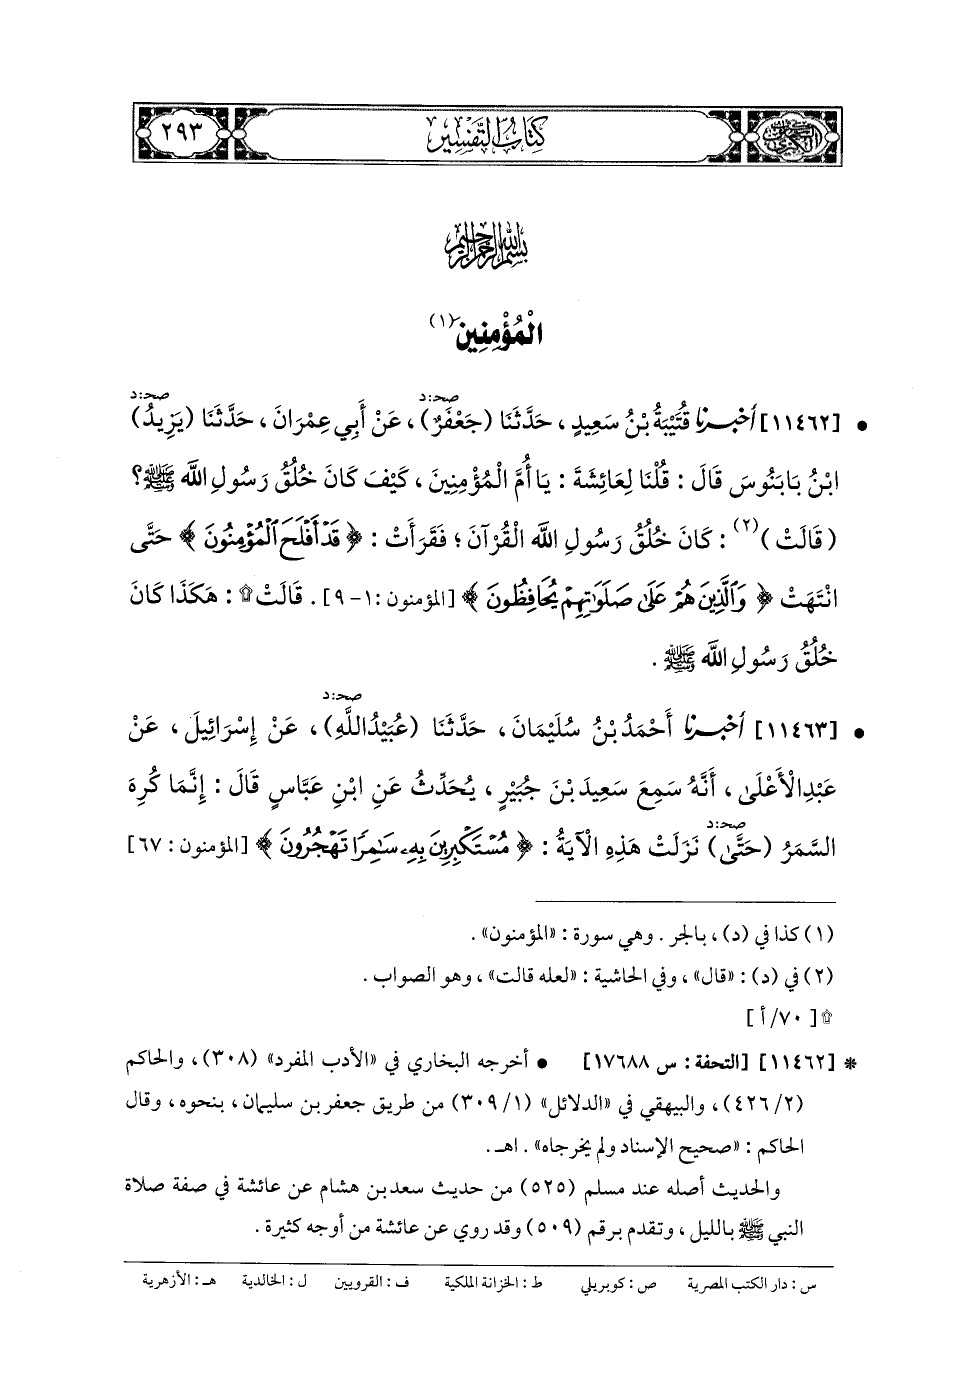 كتاب التفسير
٢٩٣
بسم الله الرحمن الرحيم
الْمُؤْمِنِين(١)
صحـ: د صحـ: د
• [١١٤٦٢] أخبرنا قُتَيْبَةُ بْنُ سَعِيدٍ، حَدَّثَنَا (جَعْفَرٌ)، عَنْ أَبِي عِمْرَانَ، حَدَّثَنَا (يَزِيدُ)
ابْنُ بَابَنُوسَ قَالَ: قُلْنَا لِعَائِشَةَ: يَا أُمَّ الْمُؤْمِنِينَ، كَيْفَ كَانَ خُلُقُ رَسُولِ اللَّه ﷺ؟
(قَالَتْ)(٢): كَانَ خُلُقُ رَسُولِ اللَّه الْقُرْآنَ؛ فَقَرَأَتْ: ﴿قَدْ أَفْلَحَ الْمُؤْمِنُونَ﴾ حَتَّى
انْتَهَتْ ﴿وَالَّذِينَ هُمْ عَلَى صَلَوَاتِهِمْ يُحَافِظُونَ﴾ [المؤمنون: ١- ٩]. قَالَتْ۩: هَكَذَا كَانَ
خُلُقُ رَسُولِ اللَّه ﷺ.
صحـ: د
• [١١٤٦٣] أخبرنا أَحْمَدُ بْنُ سُلَيْمَانَ، حَدَّثَنَا (عُبَيْدُاللَّهِ)، عَنْ إِسْرَائِيلَ، عَنْ
عَبْدِالْأَعْلَى، أَنَّهُ سَمِعَ سَعِيدَ بْنَ جُبَيْرٍ، يُحَدِّثُ عَنِ ابْنِ عَبَّاسٍ قَالَ: إِنَّمَا كُرِهَ
صحـ: د
السَّمَرُ (حَتَّى) نَزَلَتْ هَذِهِ الْآيَةُ: ﴿مُسْتَكْبِرِينَ بِهِۦ سَامِرًا تَهْجُرُونَ﴾ [المؤمنون: ٦٧]
(١) كذا في (د)، بالجر. وهي سورة: «المؤمنون».
(٢) في (د): «قال»، وفي الحاشية: «لعله قالت»، وهو الصواب.
۩ [٧٠/ أ]
* [١١٤٦٢] [التحفة: س ١٧٦٨٨] • أخرجه البخاري في «الأدب المفرد» (٣٠٨)، والحاكم
(٢/ ٤٢٦)، والبيهقي في «الدلائل» (١/ ٣٠٩) من طريق جعفر بن سليمان، بنحوه، وقال
الحاكم: «صحيح الإسناد ولم يخرجاه». اهـ.
والحديث أصله عند مسلم (٥٢٥) من حديث سعد بن هشام عن عائشة في صفة صلاة
النبي ﷺ بالليل، وتقدم برقم (٥٠٩) وقد روي عن عائشة من أوجه كثيرة.
س: دار الكتب المصرية ص: كوبريلي ط: الخزانة الملكية ف: القرويين ل: الخالدية هـ: الأزهرية